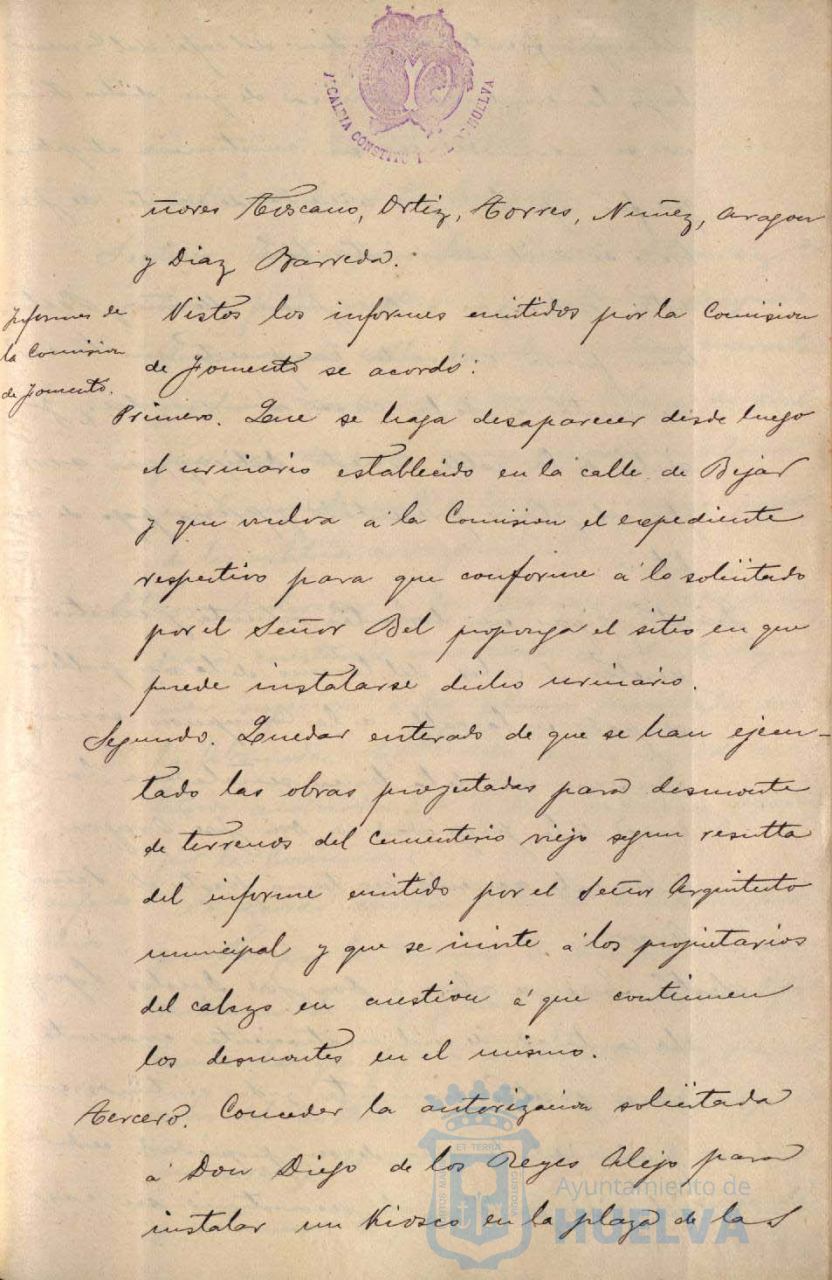 ALCALDIA CONSTITUCIONAL DE HUELVA
ñores Toscano, Ortiz, Torres, Nuñez, Aragon
y Diaz Barreda.
Informes de
la Comision
de Fomento.
Vistos los informes emitidos por la Comision
de Fomento se acordó:
Primero. Que se haga desaparecer desde luego
el urinario establecido en la calle de Bejar
y que vuelva á la Comision el expediente
respectivo para que conforme á lo solicitado
por el Señor Bel proponga el sitio en que
puede instalarse dicho urinario.
Segundo. Quedar enterado de que se han ejecu-
tado las obras proyectadas para desmonte
de terrenos del cementerio viejo segun resulta
del informe emitido por el Señor Arquitecto
municipal y que se invite á los propietarios
del cabezo en cuestion á que continuen
los desmontes en el mismo.
Tercero. Conceder la autorizacion solicitada
á Don Diego de los Reyes Alejo para
instalar un Kiosco en la plaza de las
ET TERRA
Ayuntamiento de
HUELVA